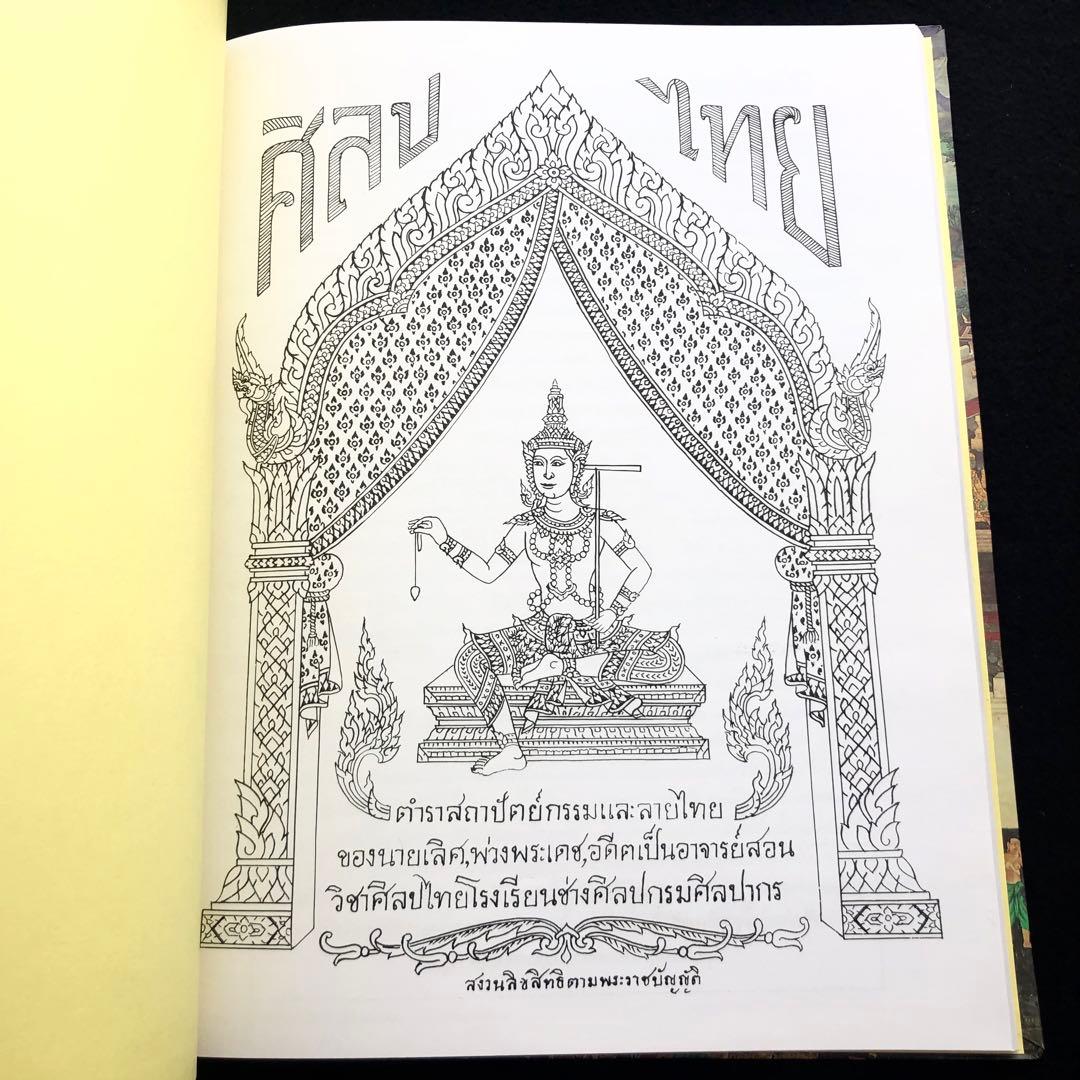 ศิลป ไทย
ตำราสถาปัตย์กรรมและลายไทย
ของนายเลิศ,พ่วงพระเดช,อดีตเป็นอาจารย์สอน
วิชาศิลปไทยโรงเรียนช่างศิลปกรมศิลปากร
สงวนลิขสิทธิตามพระราชบัญญัติ